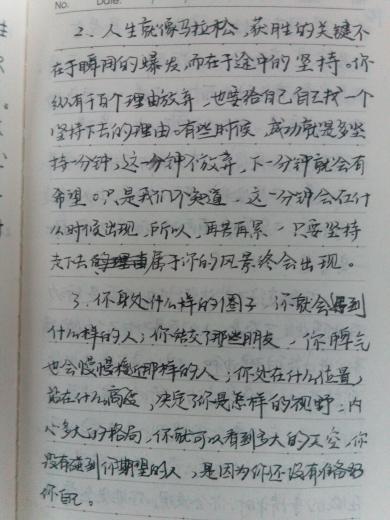 No. Date.
2、人生就像马拉松，获胜的关键不
在于瞬间的爆发，而在于途中的坚持。你
纵有千百个理由放弃，也要给自己自己找一个
坚持下去的理由。有些时候，成功就是多坚
持一分钟，这一分钟不放弃，下一分钟就会有
希望。只是我们不知道，这一分钟会在什
么时候出现，所以，再苦再累，只要坚持
走下去的理由属于你的风景终会出现。
3、你身处什么样的圈子，你就会遇到
什么样的人；你结交了那些朋友，你脾气
也会慢慢接近那样的人；你处在什么位置，
站在什么高度，决定了你是怎样的视野；内
心多大的格局，你就可以看到多大的天空。你
没有碰到你期望的人，是因为你还没有
你自己。